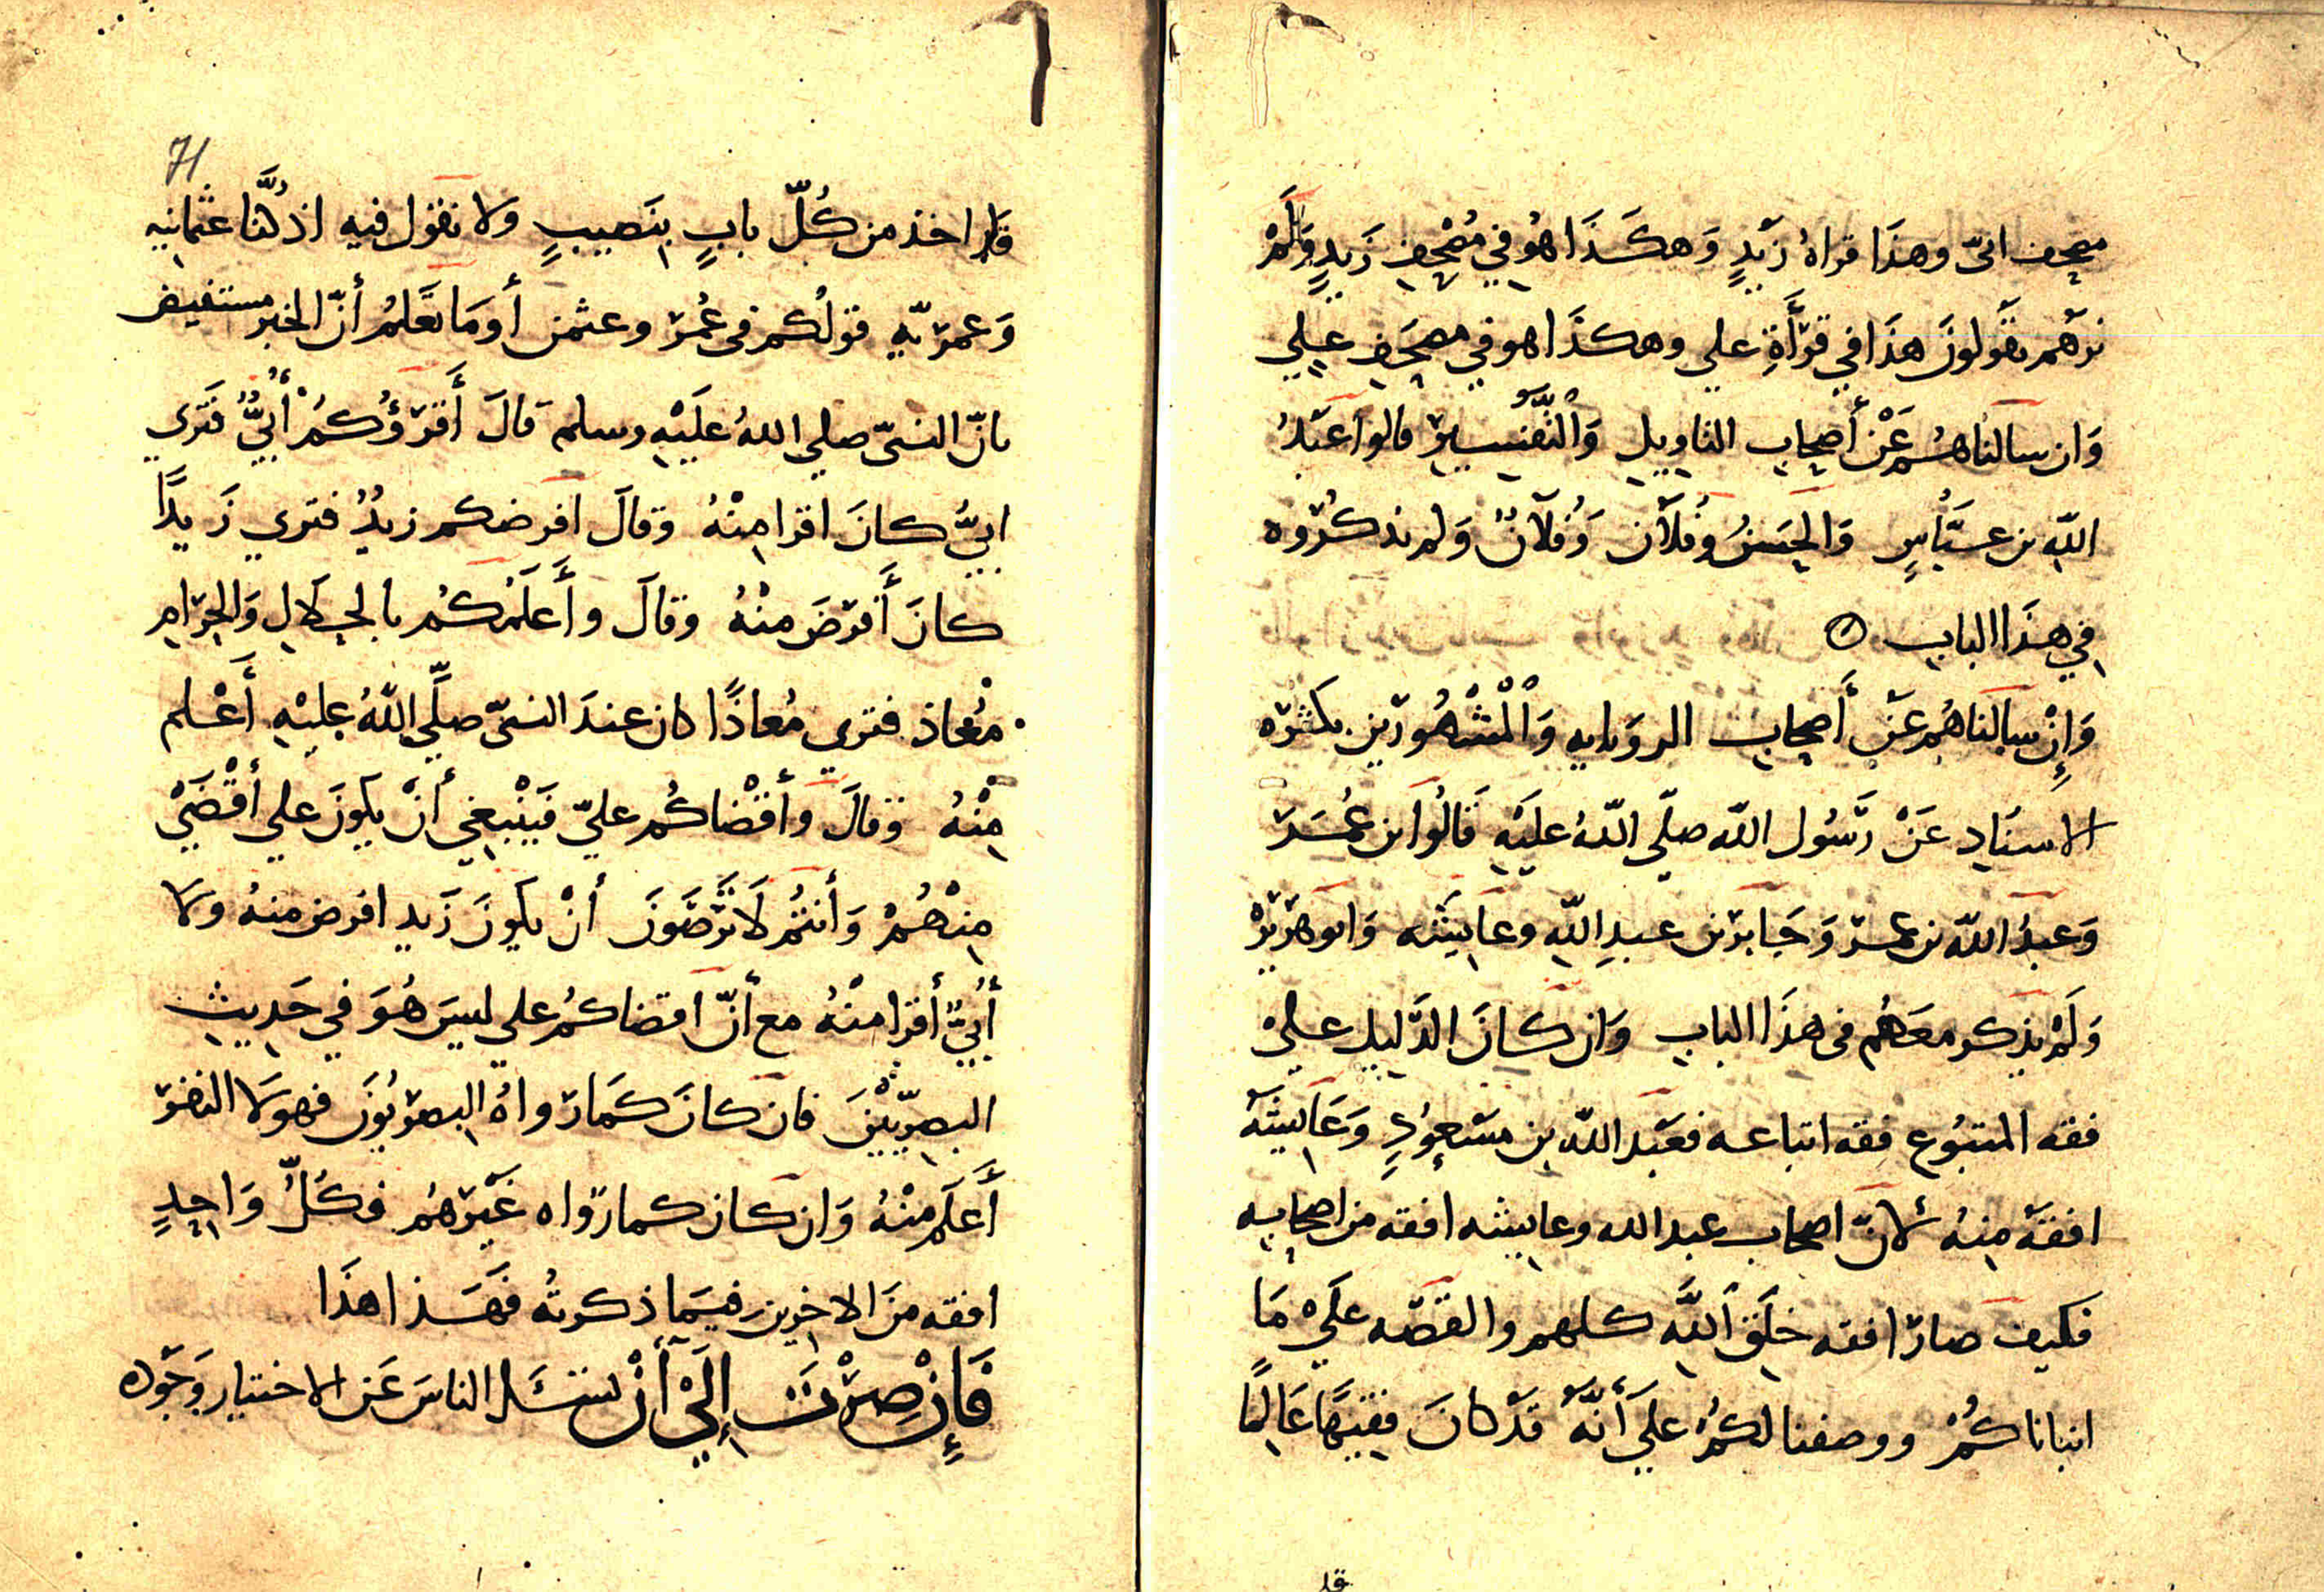 مصحف ابيّ وهذَا قراهُ زَيْدٍ وَهكَذَا هُو في مُصْحِفِ زَيدٍ وَلَمْ
نرَهُم يقَولونَ هذَا في قرَأَةِ علي وهكذَا هو في مصحَفِ عِلي
وَان سالنَاهُم عَنْ أَصحِابِ التاويلِ وَالْتَّفسِيِر قالوا عَبْدُ
اللهِ بن عبَّاسٍ وَالحِسَنُ وَفُلاَن وَفُلاَنٌ وَلم نذكرُوه
في هذَا البابِ
وَإِنْ سالنَاهُم عَنْ أَصحِابِ الروَايهِ وَالْمشْهُورَين بكَثرَه
الاسنَادِ عَنْ رَسُول اللّه صلّي اللّهُ عليَهِ قَالُوا بن عُمَر
وَعَبدُ اللّه بن عمر وَجَابرَ بن عبدِ اللّهِ وعَايِشَه وَابو هرَيرَه
وَلَمْ يذِكر معَهُم فى هذَا البابِ وَان كانَ الدَّليِل عليْ
فقه المتبُوع فقه اتباعه فعَبْد اللّه بن مسَعوُدٍ وَعَايِشَة
افقَه مِنهُ لانّ اصحاب عبد الله وعايشه افقه من اصحابِه
فكيف صارَ افقه خلَقِ اللَّهِ كلهم والقصّه علَيْ مَا
انباناكُمْ ووصفنا لكُمْ علَي أَنَّهُ قَدْ كانَ فقيهًا عَالِمًا
قد
71
قد اخذ من كُلّ بابٍ بِنَصيبٍ ولا نقول فيهِ اذ كُنَّا عثمانيه
وَعمرَيّهٍ قولُكم فى عُمَرَ وعثمن أو مَا نعَلمُ أنّ الخبر مستفيض
بانّ النبىّ صلي اللهُ علَيْهِ وسلم قالَ أَقرَؤُكُمْ أُبَيٌّ فَتَري
ابيٌّ كانَ اقرا مِنْهُ وقالَ افرضكم زيدٌ فتري زَيدًا
كانَ أَفرَضَ منْهُ وقالَ وأَعلَمُكُم بالحِلاَلِ وَالحِرَامِ
مُعاذ فتري مُعاذًا كان عندَ النبىّ صلّي اللّهُ عليْهِ أَعْلم
مِنْهُ وقالَ وأَقْضاكُم عليّ فَينْبغِي أنْ يكونَ علي أقْضَىْ
مِنْهُمْ وَأَنتُم لَا ترَضَونَ أنْ يكونَ زَيد افرض منهُ وَلا
أُبَيٌّ أَقرا منْهُ مع أَنّ اقضاكُم علي ليسَ هُوَ في حَديِثِ
البصِرّيّيْنَ فان كانَ كمَا رَواهُ البِصرَيُونَ فهولَا النفرَ
أَعلَم منْهُ وَان كان كما رَواه غَيْرَهُم فكُلُّ وَاحِدٍ
افقه منَ الاخرِين فيَما ذكرتُه فَهَذا هذَا
فَإِنْ صِرْتَ إِلَيْ أَنْ تسَئل الناسَ عَن الاختيار وَجَوه